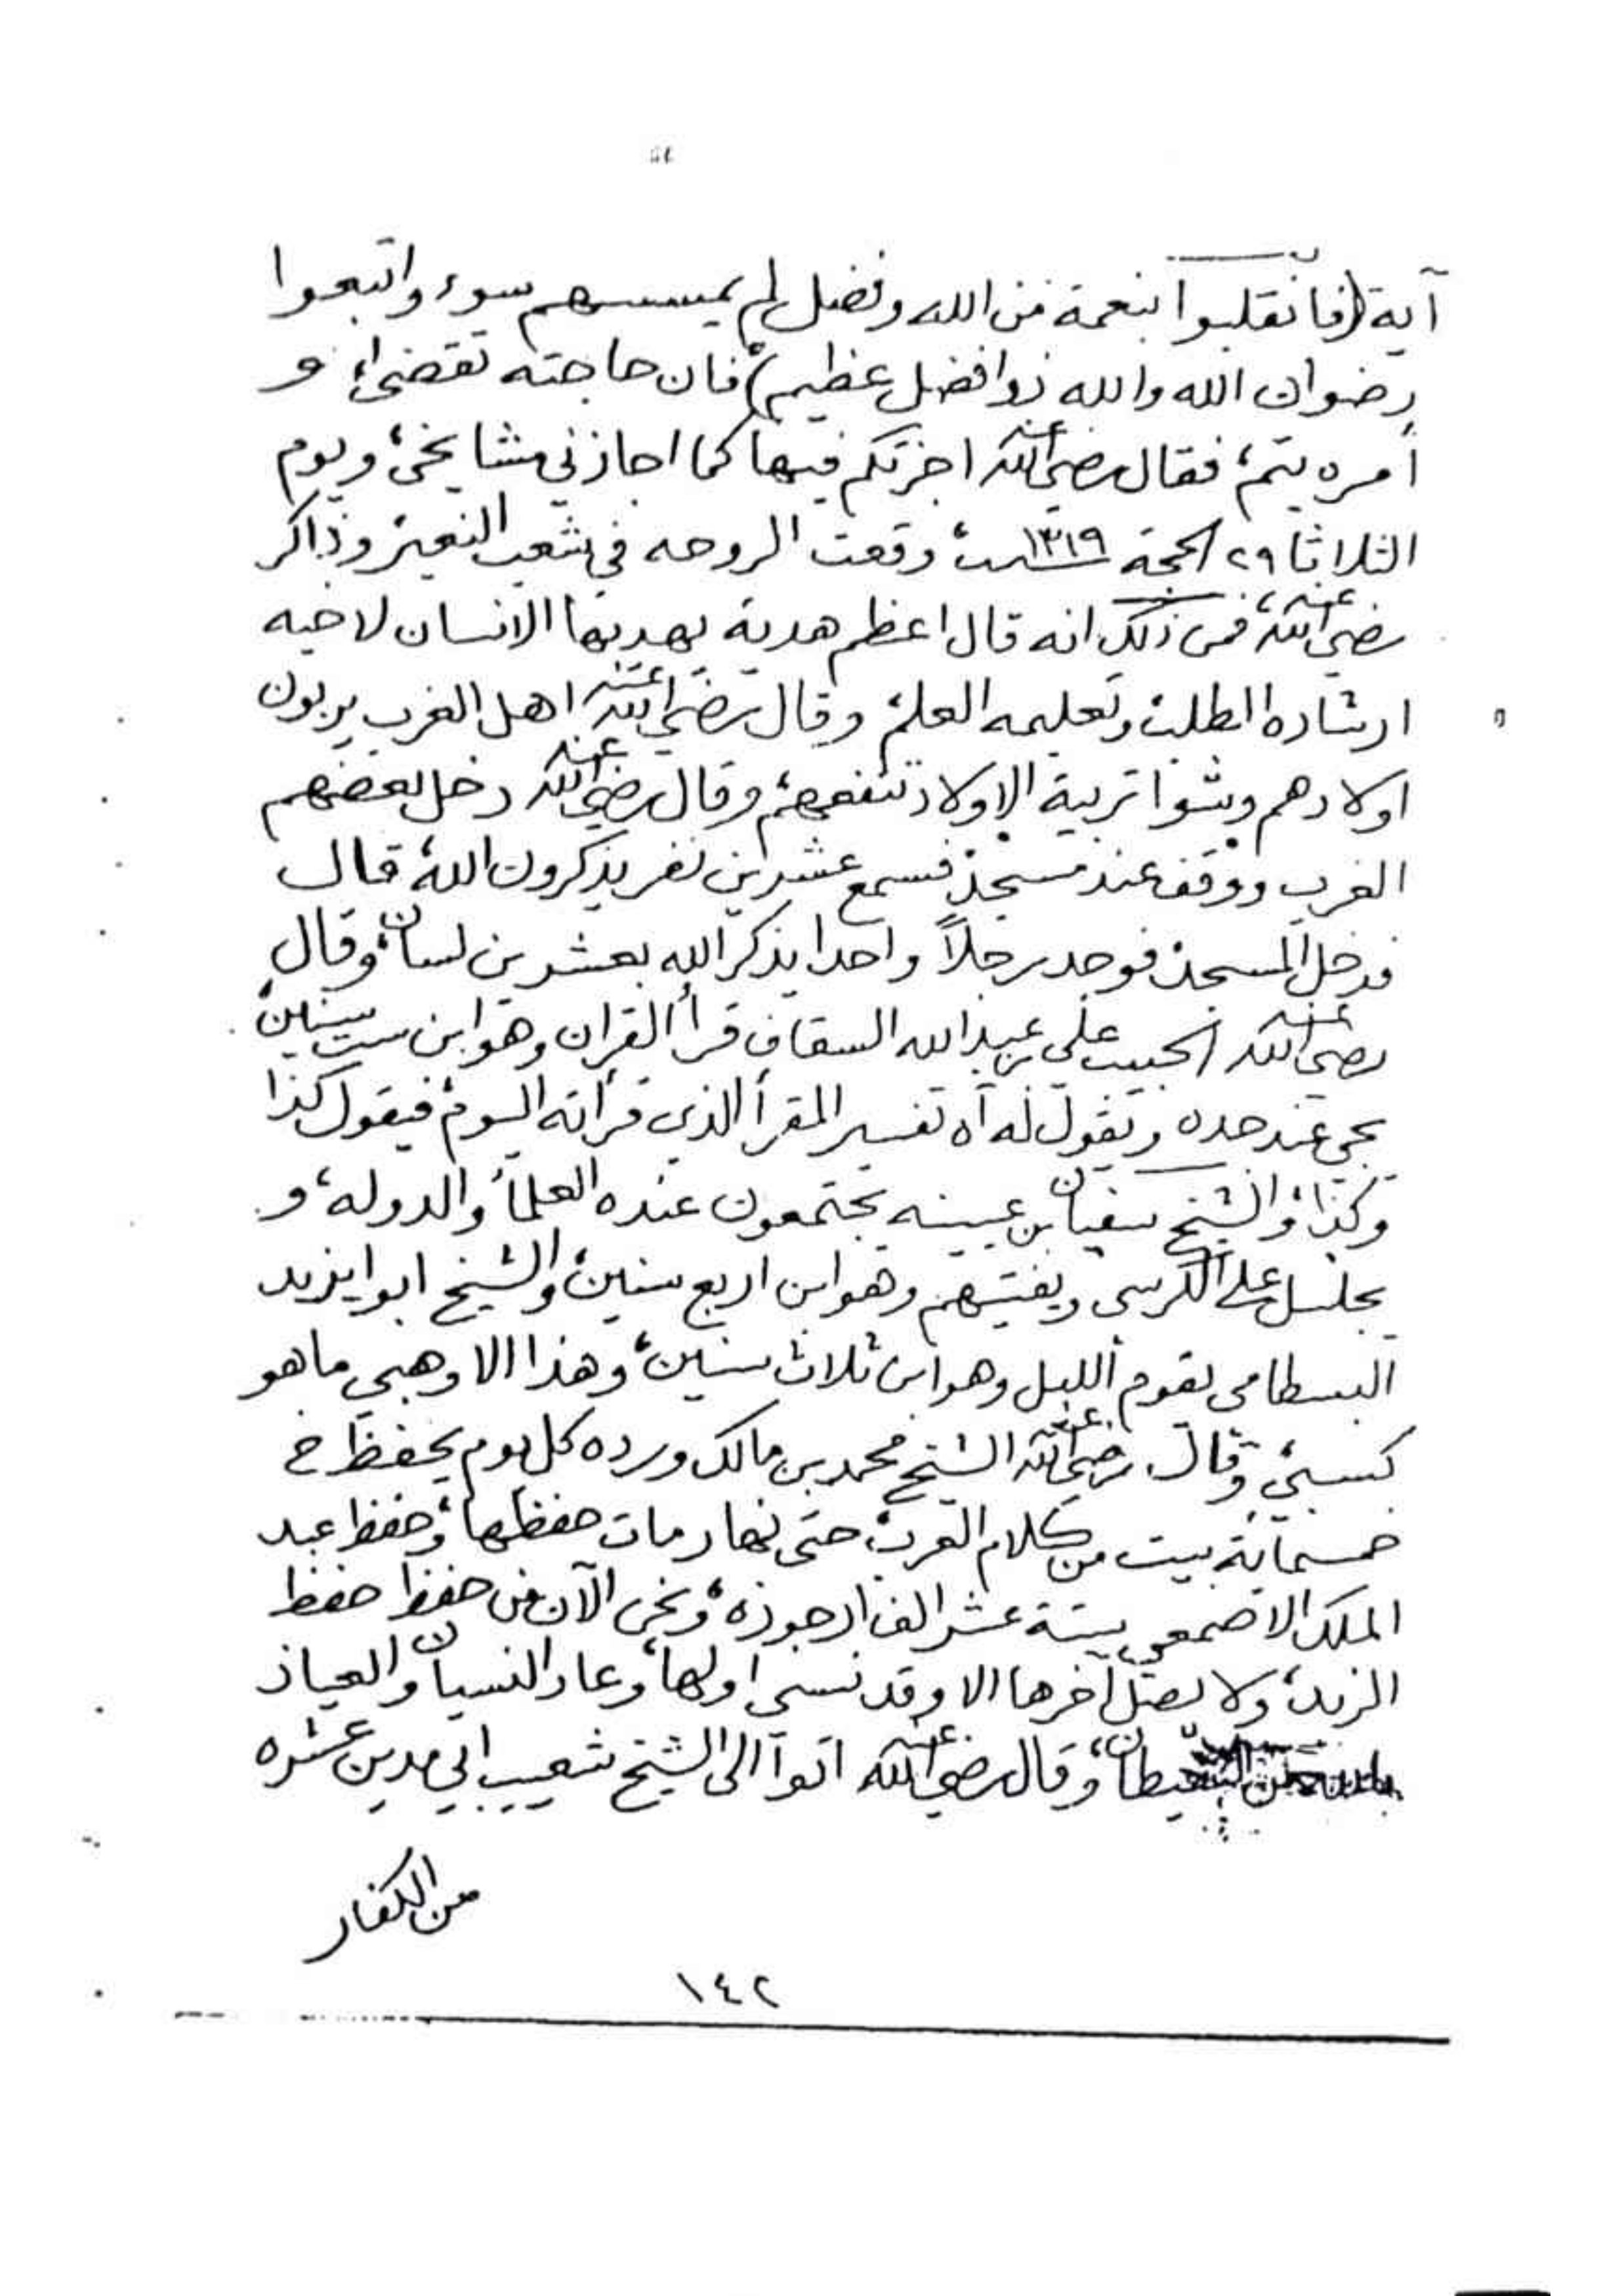 آية (فانقلبوا بنعمة من الله وفضل لم يمسسهم سوء واتبعوا
رضوان الله والله ذوا فضل عظيم) فان حاجته تقضى، و
أمره يتم، فقال رضي الله عنه اجزتكم فيها كما اجازني مشايخي، ويوم
الثلاثا ٢٩ الحجة سنة ١٣١٩ وقعت الروحه في شعب النعير وذاكر
رضي الله عنه، فمن ذلك انه قال اعظم هدية يهديها الانسان لاخيه
ارشاده الطلب وتعليمه العلم، وقال رضي الله عنه اهل الغرب يربون
اولادهم وشوا تربية الاولاد تنفعهم، وقال رضي الله عنه دخل بعضهم
الغرب ووقف عند مسجد فسمع عشرين نفر يذكرون الله، قال
فدخل المسجد فوجد رجلاً واحدا يذكر الله بعشرين لسان، وقال
رضي الله عنه الحبيب علي بن عبد الله السقاف قرأ القران وهو ابن ست سنين
يجي عند جده ويقول له آه تفسير المقرأ الذي قرأته اليوم، فيقول كذا
وكذا، والشيخ سفيان بن عيينه يجتمعون عنده العلمأ والدوله، و
يجلس على الكرسي ويفتيهم وهو ابن اربع سنين، والشيخ ابوا يزيد
البسطامي يقوم الليل وهو ابن ثلاث سنين، وهذا الا وهبي ما هو
كسبي، وقال رضي الله عنه الشيخ محمد بن مالك ورده كل يوم يحفظ خ
خمسمائة بيت من كلام العرب، حتى نهار مات حفظها، وحفظ عبد
الملك الاصمعي ستة عشر الف ارجوزه، ونحن الآن من حفظ حفظ
الزبد، ولا يصل آخرها الا وقد نسي اولها، وعاد النسيان والعياذ
من الشيطان، وقال رضي الله عنه اتوا الى الشيخ شعيب ابي مدين عشره
من الكفار
١٤٢